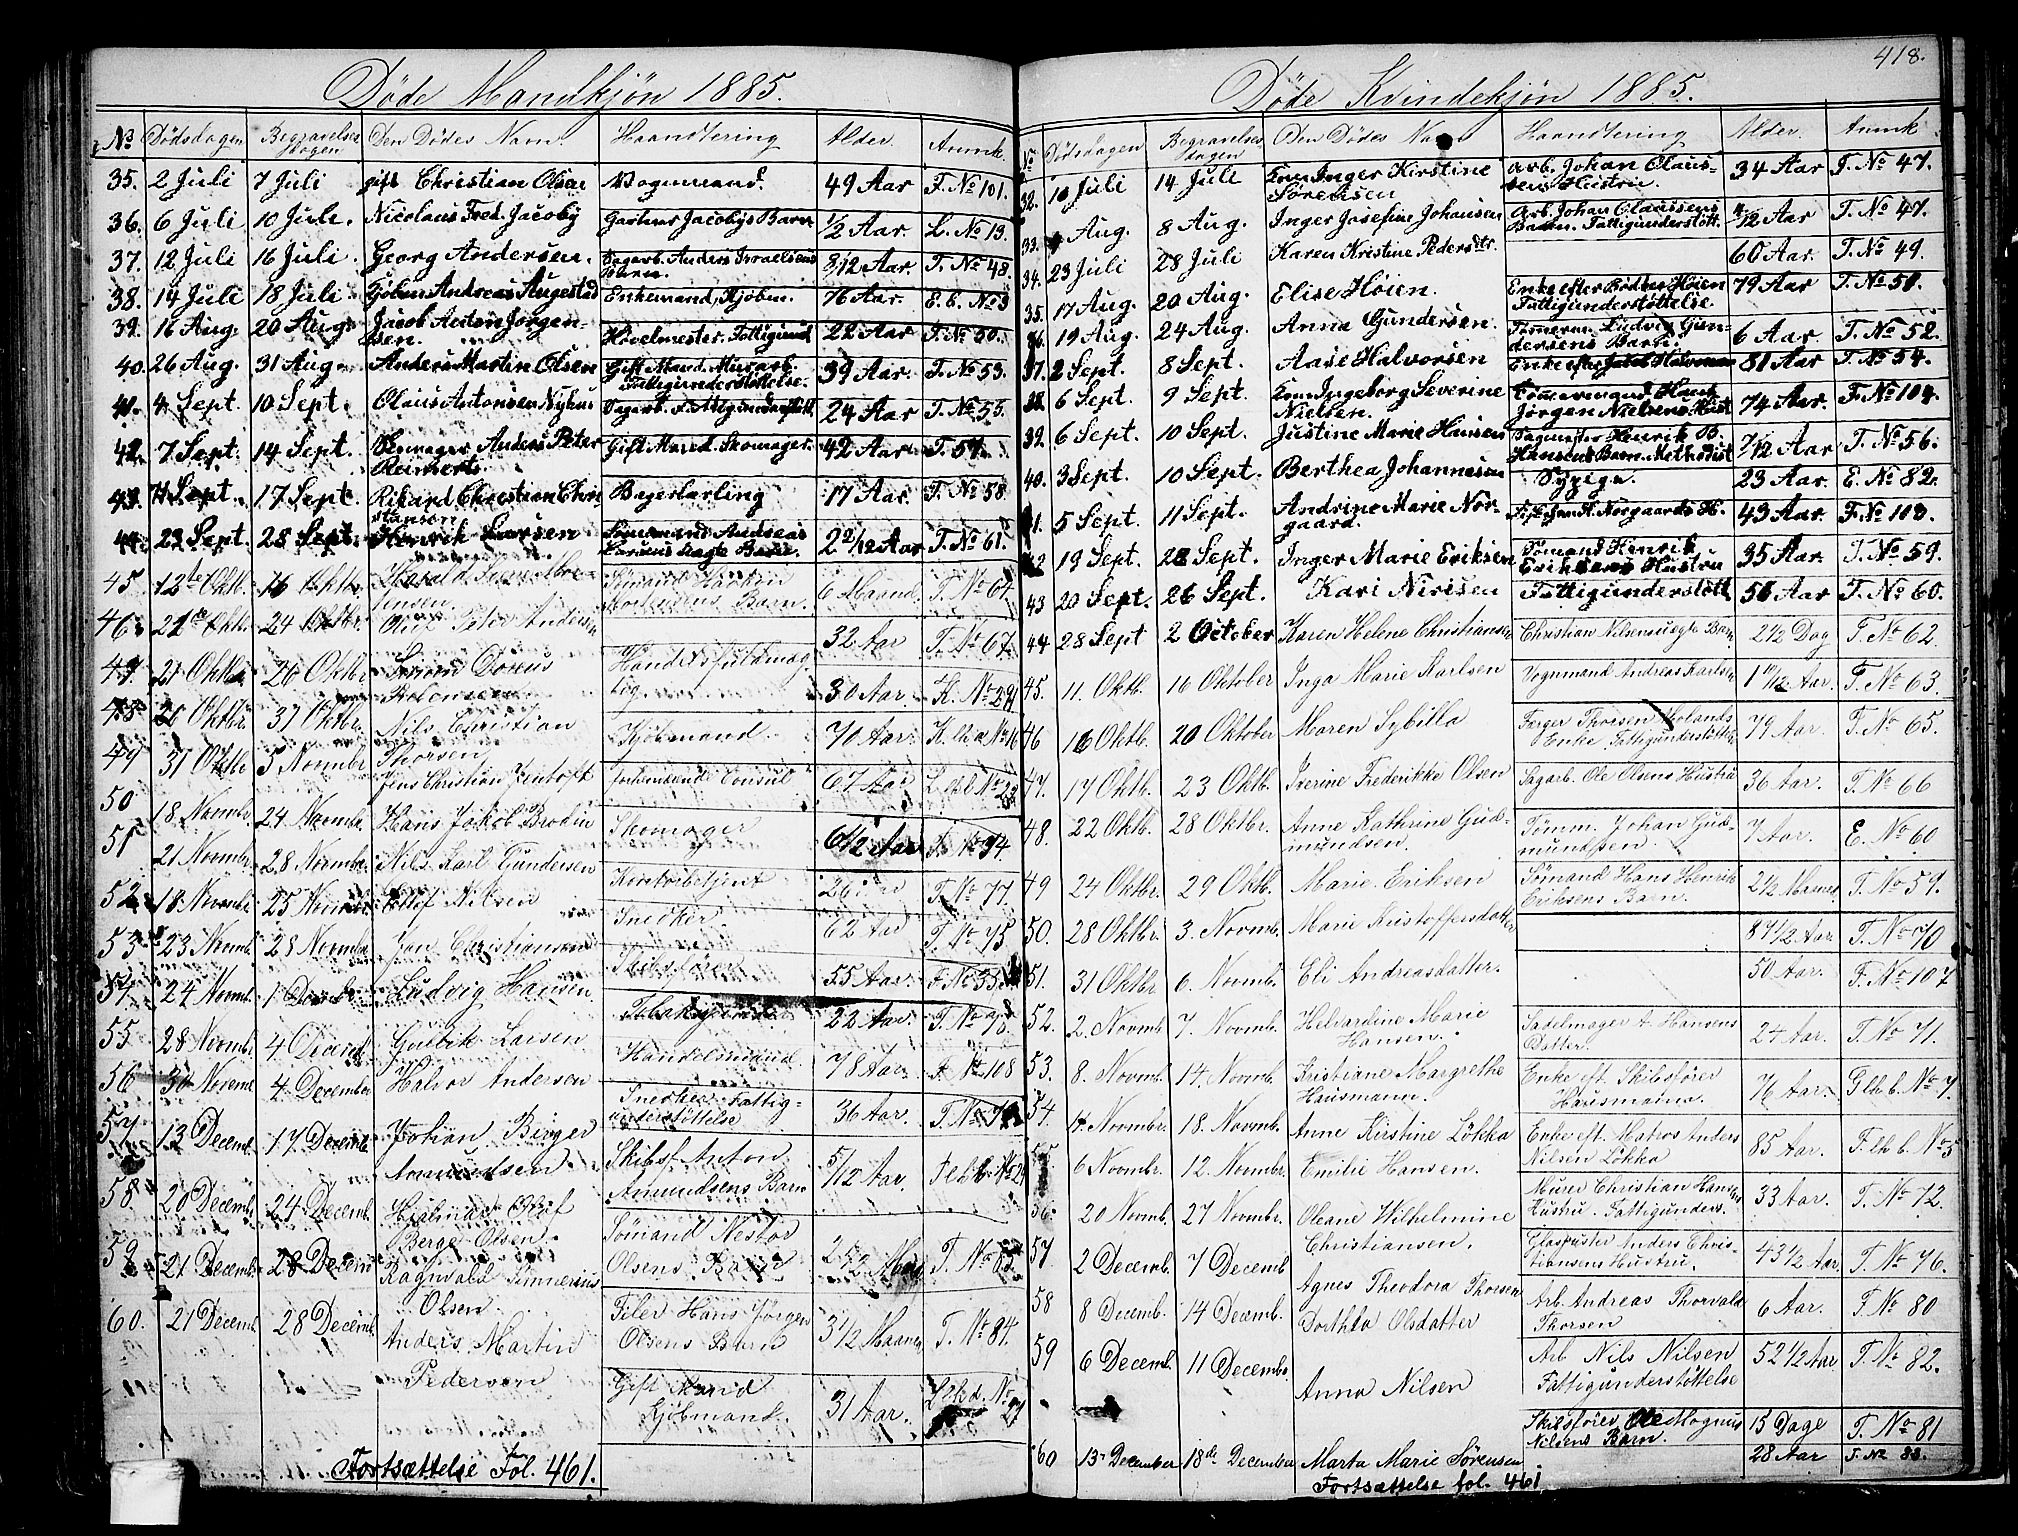 Døde Mandkjøn 1885.
No Dødsdagen Begravelsesdagen Den Dødes Navn Haandtering Alder. Anmk.
35. 2 Juli 7 Juli gift Christian Olsen Vognmand. 49 Aar F. No 101.
36. 6 Juli 10 Juli. Nicolaus Fred. Jacoby Gartner Jacobys Barn 1/2 Aar. L. No 13.
37. 12 Juli 16 Juli. Georg Andersen. Sagarb. Anders Israelsens Barn. 8/12 Aar. T. No 48.
38. 14 Juli 18 Juli. Andreas Augestad Enkemand, Kjøbm. 76 Aar. E. b. No 3
39. 16 Aug. 20 Aug. Jacob Anton Jørgensen. Høvelmester. Fattigund 22 Aar T. No 50.
40. 26 Aug. 31 Aug. Anders Martin Olsen Gift Mand. Murarb. Fattigunderstøttelse. 39 Aar. T. No 53.
41. 4 Sept. 10 Sept. Olaus Antonsen Nyhus Sagarb. Fattigunderstøtt. 24 Aar T. No 55.
42. 7 Sept. 14 Sept. Skomager Anders Peter Reimerts Gift Mand. Skomager. 42 Aar. T. 57.
43. 11 Sept. 17 Sept. Rikard Christian Christiansen Bagerlærling 17 Aar. T. No 58
44. 23 Sept. 28 Sept. Henrik Larsen Sømand Andreas Larsens uægte Barn. 2 2/12 Aar T. No 61.
45 12te Oktb. 16 Oktbr Barn. 6 Maand. T. No 64.
46. 21de Oktb. 24 Oktbr. Oluf Peter Andersen 32 Aar T. No 67.
47. 21 Oktbr 26 Oktbr. Handelsfuldmægtig. 30 Aar. K. No 291
48. 26 Oktbr. 31 Oktbr. Nils Christian Thorsen Kjøbmand 70 Aar. No 16
49 31 Oktbr 5 Novmbr Jens Christian Zentoft forhenværende Consul 67 Aar No 22
50 18 Novmbr. 24 Novmb. Hans Jakob Brodin Skomager 61 1/2 Aar T. No 74.
51 21 Novmbr. 28 Novmbr. Nils Karl Gundersen Kontorbetjent 26 Aar T. No 77.
52. 18 Novmbr 25 Novmbr Ellef Nilsen Snedker 62 Aar T. No 75
53 23 Novmb. 28 Novmbr. Jan Christiansen Skibsfører 55 Aar. F. No 35
54 24 Novmb. 1 Decmbr Ludvig Hansen 22 Aar. T. No 78.
55 28 Novmbr 4 Decmb Gulbik Larsen Handelsmand 78 Aar. F. No 108
56 30 Novemb 4. December Halvor Andersen Snedker Fattigunderstøttelse 36 Aar. T. No
57 13 Decemb. 17 Decemb. Johan Birger Amundsen. Skibsf. Anton Amundsens Barn 5/12 Aar. No 24
58. 20 Decemb. 24 Decemb. Hjalmar Oluf Berge Olsen. Sømand Nestor Olsens Barn 2 1/2 Maan T. No 65.
59 21 Decemb. 28 Decemb Ragnvald Olsen. Filer Hans Jørgen Olsens Barn 3 1/2 Maaned T. No 84.
60. 21 Decemb. 28 Decemb. Anders Martin Pedersen Gift Mand Kjøbmand. 31 Aar. No 27
Fortsættelse Fol. 461.
418.
Døde Kvindekjøn 1885.
No Dødsdagen Begravelsesdagen Den Dødes Navn Haandtering Alder. Anmk
32. 10 Juli 14 Juli Kone Inger Kirstine Sørensen arb. Johan Claussens Hustru. 34 Aar T. No 47.
33. 4 Aug. 8 Aug. Inger Josefine Johansen Arb. Johan Claussens Barn. Fattigunderstøtt. 11/12 Aar T. No 47.
34. 23 Juli 28 Juli Karen Kristine Pedersdtr. 60 Aar. T. No 49.
35. 17 Aug. 20 Aug. Elise Høien. Enke efter Bødker Høien Fattigunderstøttelse. 79 Aar T. No 51.
36. 19 Aug. 24 Aug. Anna Gundersen. Tømmerm. Ludvig Gundersens Barn. 6 Aar. T. No 52.
37. 2 Sept. 8 Sept. Aase Halvorsen Enke efter Jacob Halvorsen 81 Aar T. No 54.
38. 6 Sept. 9 Sept. Kone Ingeborg Severine Nielsen. Tømmermand Hans Jørgen Nielsens Hust 74 Aar. F. No 104.
39. 6 Sept. 10 Sept. Justine Marie Hansen Sagmester Henrik B. Hansens Barn. Methodist 7/12 Aar T. No 56.
40. 3 Sept. 10 Sept. Berthea Johannesen Sypige. 23 Aar. E. No 82.
41. 5 Sept. 11 Sept. Andrine Marie Norgaard. K. Norgaards H. 43 Aar. F. No 103.
42 19 Sept. 22 Sept. Inger Marie Eriksen Sømand Henrik Eriksens Hustru 35 Aar T. No 59.
43 20 Sept. 26 Sept. Kari Nirisen Fattigunderstøtt 56 Aar T. No 60.
44 28 Sept 2 October Karen Helene Christiansen Christian Nilsens uægte Barn 2 1/2 Dag T. No 62
45. 11. Oktb. 16 Oktober Inga Marie Karlsen Vognmand Andreas Karlsen 1 10/12 Aar. T. No 63.
46 16 Oktb. 20 Oktober Maren Sybilla Færger Thorsen Molands Enke. Fattigunderstøttelse 79 Aar. T. No 65.
47. 17 Oktb. 23 Oktb. Iverine Frederikke Olsen Sagarb. Ole Olsens Hustru 36 Aar. T. No 66
48. 22 Oktb. 28 Oktbr. Anne Kathrine Gudmundsen. Tømm. Johan Gudmundsen. 7 Aar. E. No 60
49 24 Oktbr. 29 Oktb. Marie Eriksen Sømand Hans Henrik Eriksens Barn. 2 1/2 Maaned T. No 59.
50. 28 Oktbr. 3. Novmb. Marie Kristoffersdatter 87 1/2 Aar. T. No 70
51. 31 Oktbr 6. Novmb. Eli Andreasdatter. 50 Aar. F. No 107
52. 2. Novmb. 7. Novmb. Helvardine Marie Hansen. Sadelmager A. Hansens Datter. 24 Aar. T. No 71.
53. 8. Novmb. 14. Novmb. Kristiane Margrethe Hausmann. Enke eft. Skibsfører Hausmann. 76 Aar. G lb b. No 7.
54. 14 Novmbr. 18. Novmb. Anne Kirstine Løkka Enke eft. Matros Anders Nilsen Løkka 85 Aar. F. lb b. No 5
55 6 Novmbr. 12. Novmbr. Emilie Hansen. Murer Christian Hansens Hustru. Fattigunders. 33 Aar. T. No 72.
56. 20 Novmb. 27 Novmbr. Oleane Wilhelmine Christiansen. Glasmester Anders Christiansens Hustru. 43 1/2 Aar. T. No 76.
57. 2 Decemb. 7 Decemb Agnes Theodora Thorsen Arb. Andreas Thorvald Thorsen 6 Aar. T. No 80
58 8 Decemb. 14 Decemb. Dorthea Olsdatter Arb. Nils Nilsen Fattigunderstøttelse 52 1/2 Aar T. No 82.
59 6 Decemb. 11 Decembr Anna Nilsen Skibsfører Ole Magnus Nilsens Barn. 15 Dage T. No 81
60 13. December 18de December Marta Marie Sørensen 28 Aar T. No 83.
Fortsættelse fol. 461